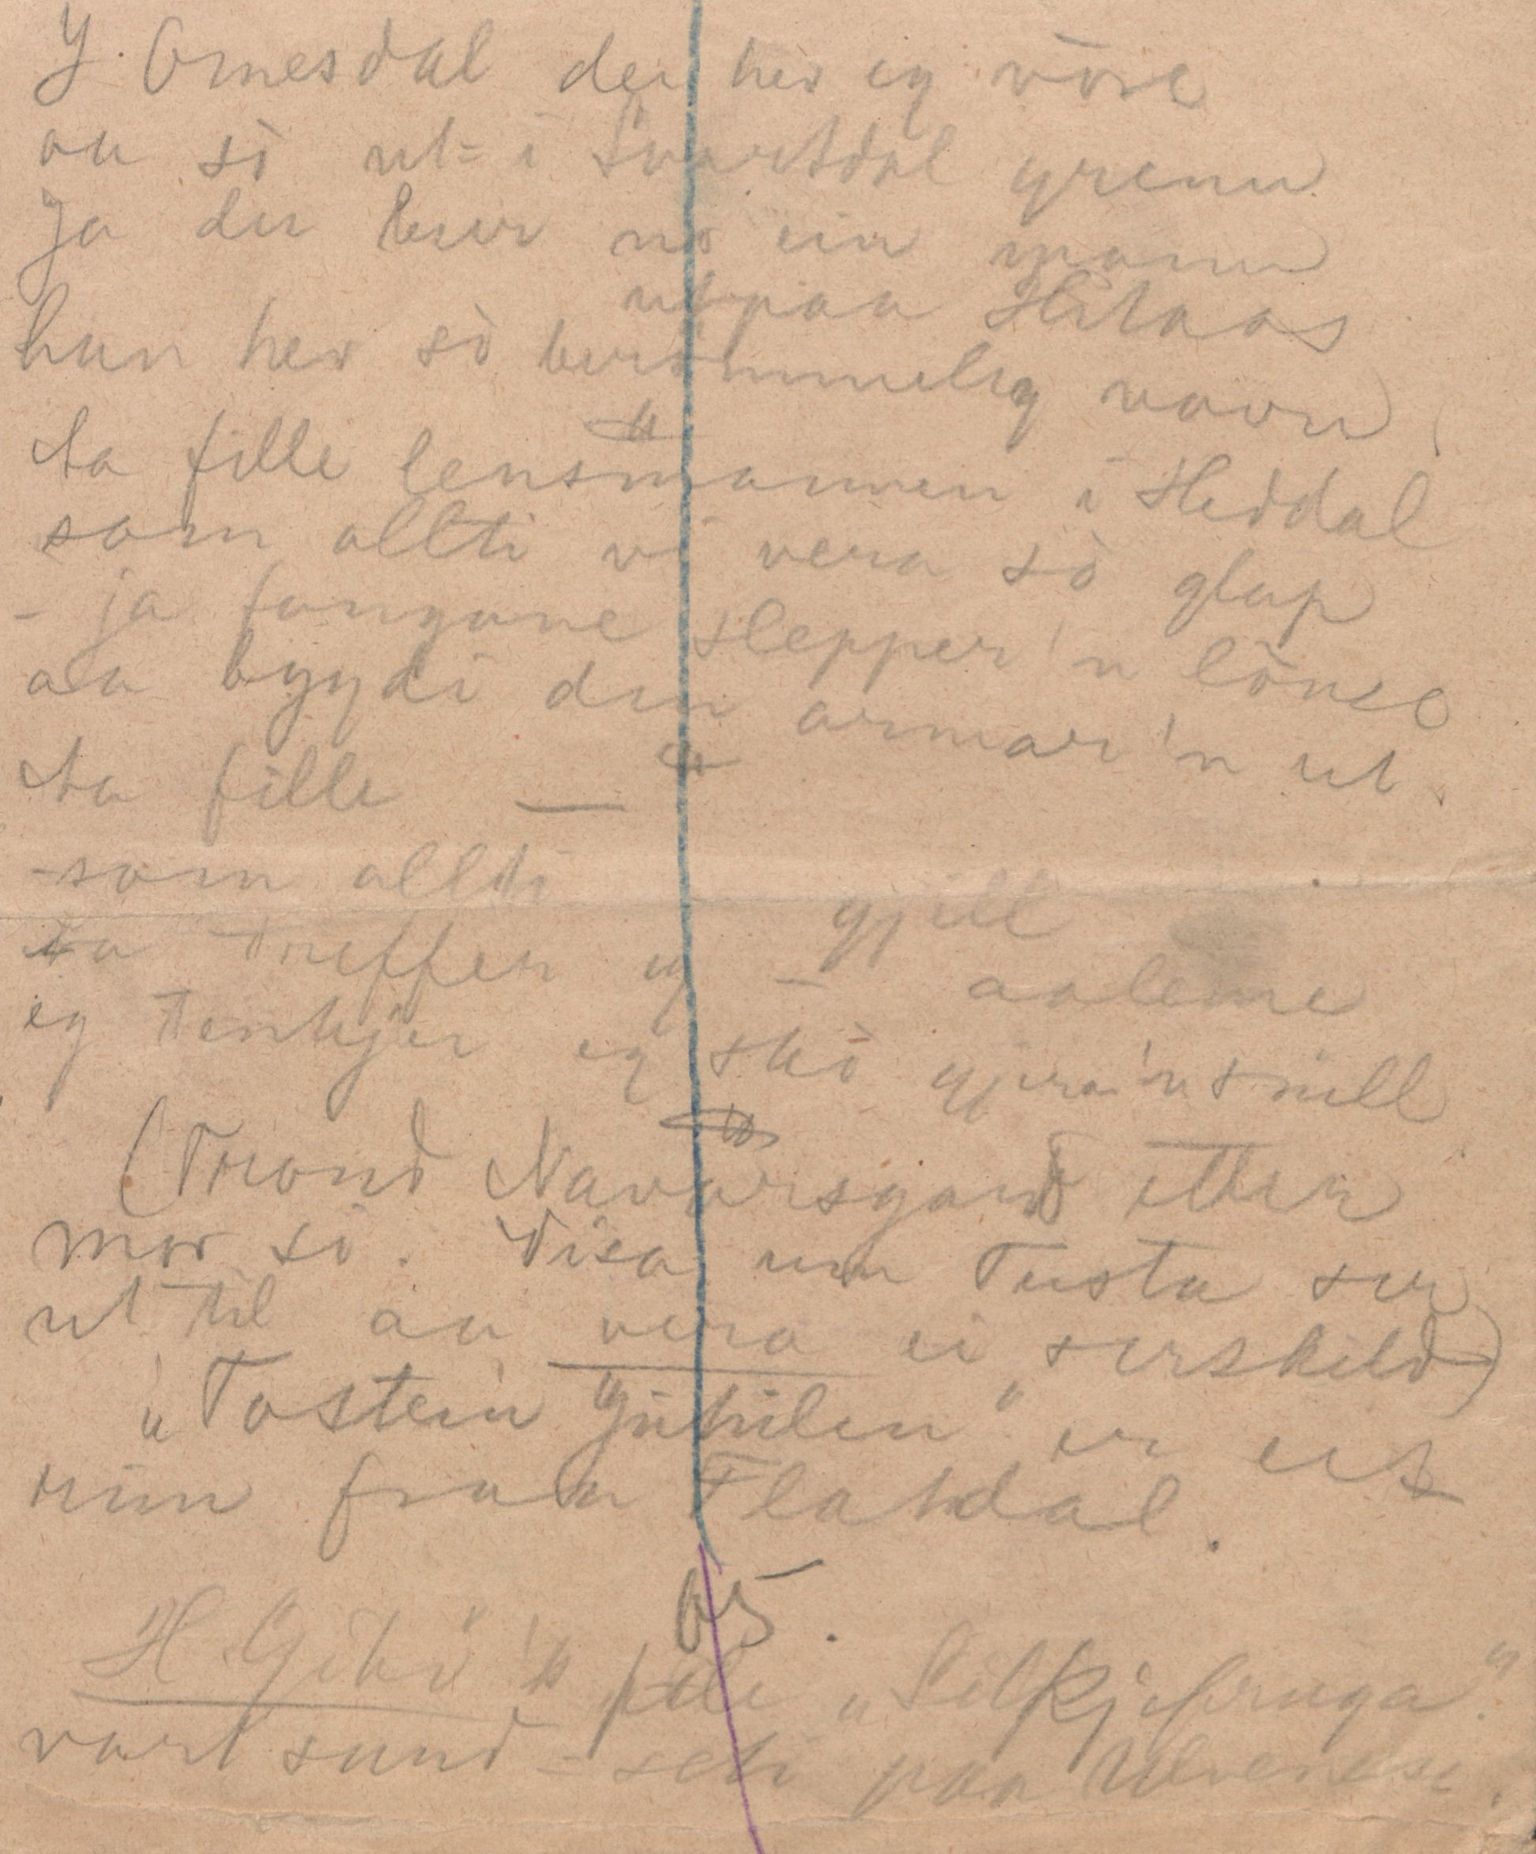 I Omesdal der hev eg vòre
au sò ut i Svartdal grenn
Ja der bur no ein mann
utpaa Hitaas
han hev sò berömmelig navn
ta fille lensmannen i Heddal
som allti vi vera sò glup
- ja fangane slepper'n lònse
aa bygdi den armar'n ut.
ta fille —
-som allti gjill
ta treffer eg — aaleine
eg tenkjer eg skò gjera'n snill
(Trond Navarsgard etter
mor si. Visa um Tusta ser
ut til aa vera ei serskild)
„Tostein Jutulen" er eit
rim fraa Flatdal.
65.
H. Gibö's fele „Silkjefruga".
vart sund-seti paa Ulvenese.